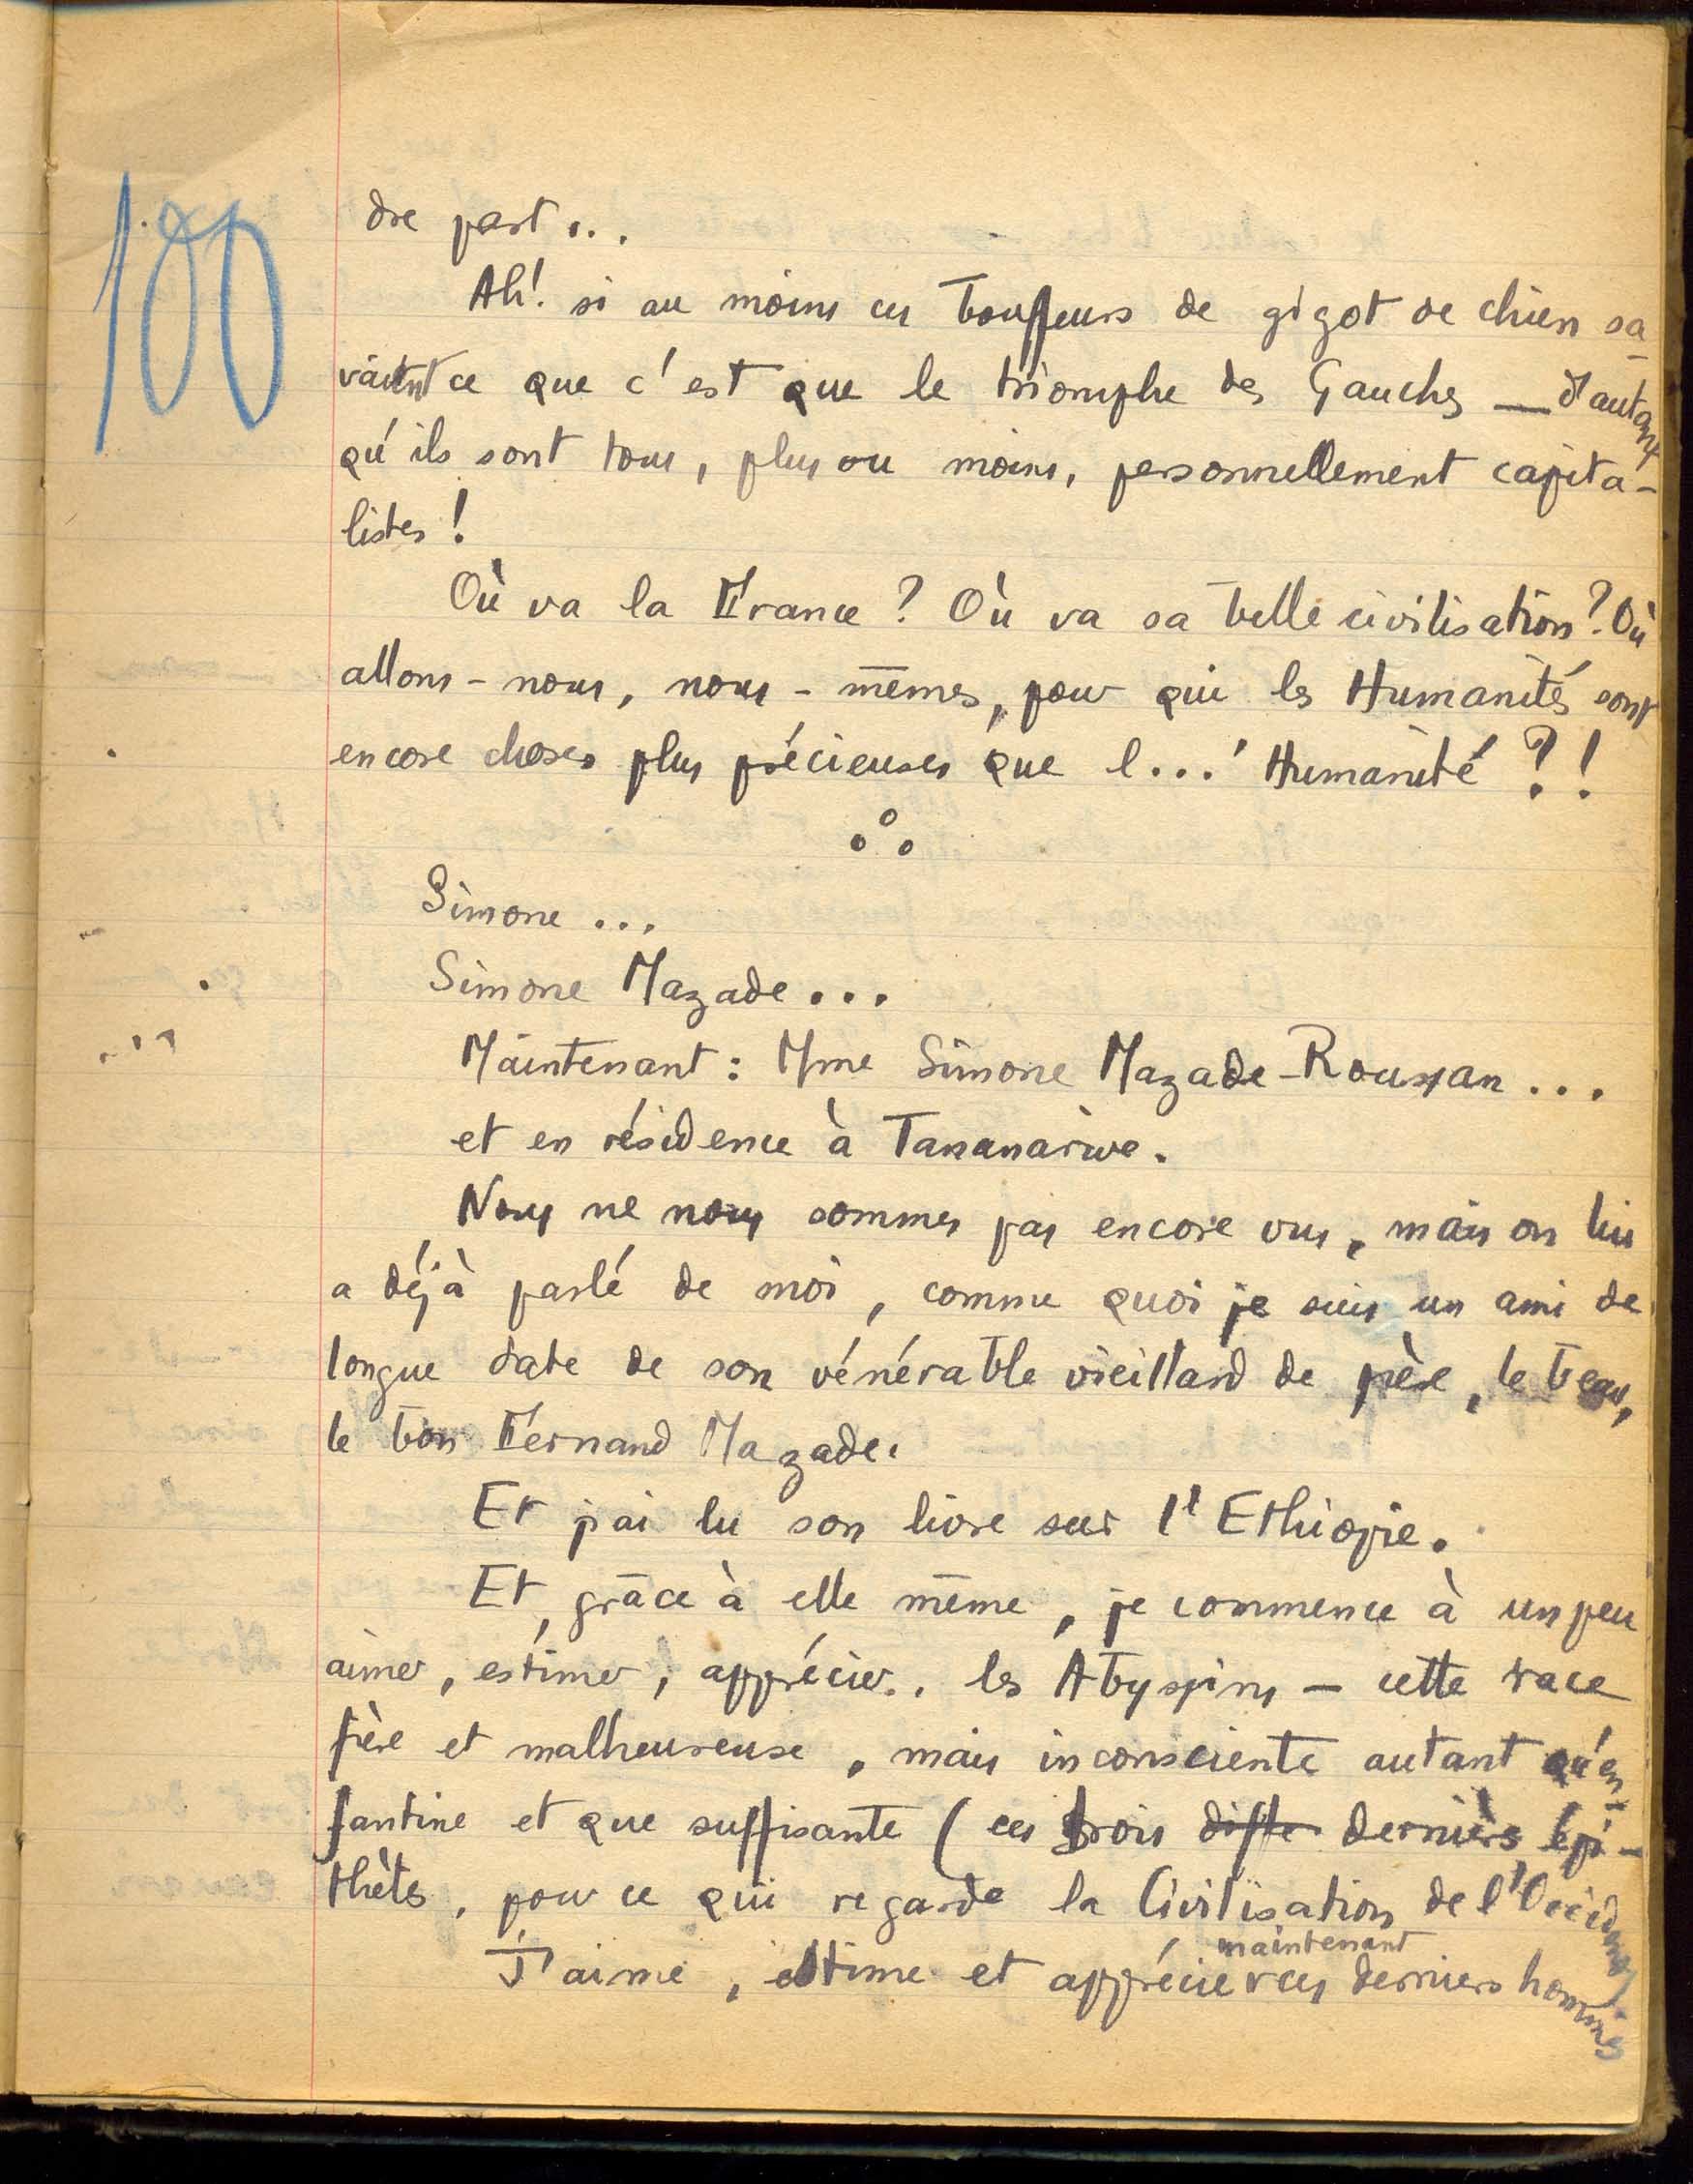 100
dre part...
Ah! si au moins ces bouffeurs de gigot de chien sa-
vaient ce que c'est que le triomphe des Gauches — d'autant
qu'ils sont tous, plus ou moins, personnellement capita-
listes !
Où va la France ? Où va sa belle civilisation ? Où
allons-nous, nous-mêmes, pour qui les Humanités sont
encore choses plus précieuses que l...'Humanité ?!
Simone ...
Simone Mazade ...
Maintenant : Mme Simone Mazade-Roussan ...
et en résidence à Tananarive.
Nous ne nous sommes pas encore vus, mais on lui
a déjà parlé de moi, comme quoi je suis un ami de
longue date de son vénérable vieillard de père, le beau,
le bon Fernand Mazade.
Et j'ai lu son livre sur l'Ethiopie.
Et, grâce à elle même, je commence à un peu
aimer, estimer, apprécier.. les Abyssins — cette race
fière et malheureuse, mais inconsciente autant qu'en-
fantine et que suffisante (ces trois derniers épi-
thètes, pour ce qui regarde la Civilisation de l'Occident).
maintenant
J'aime, estime et apprécie ces derniers hommes